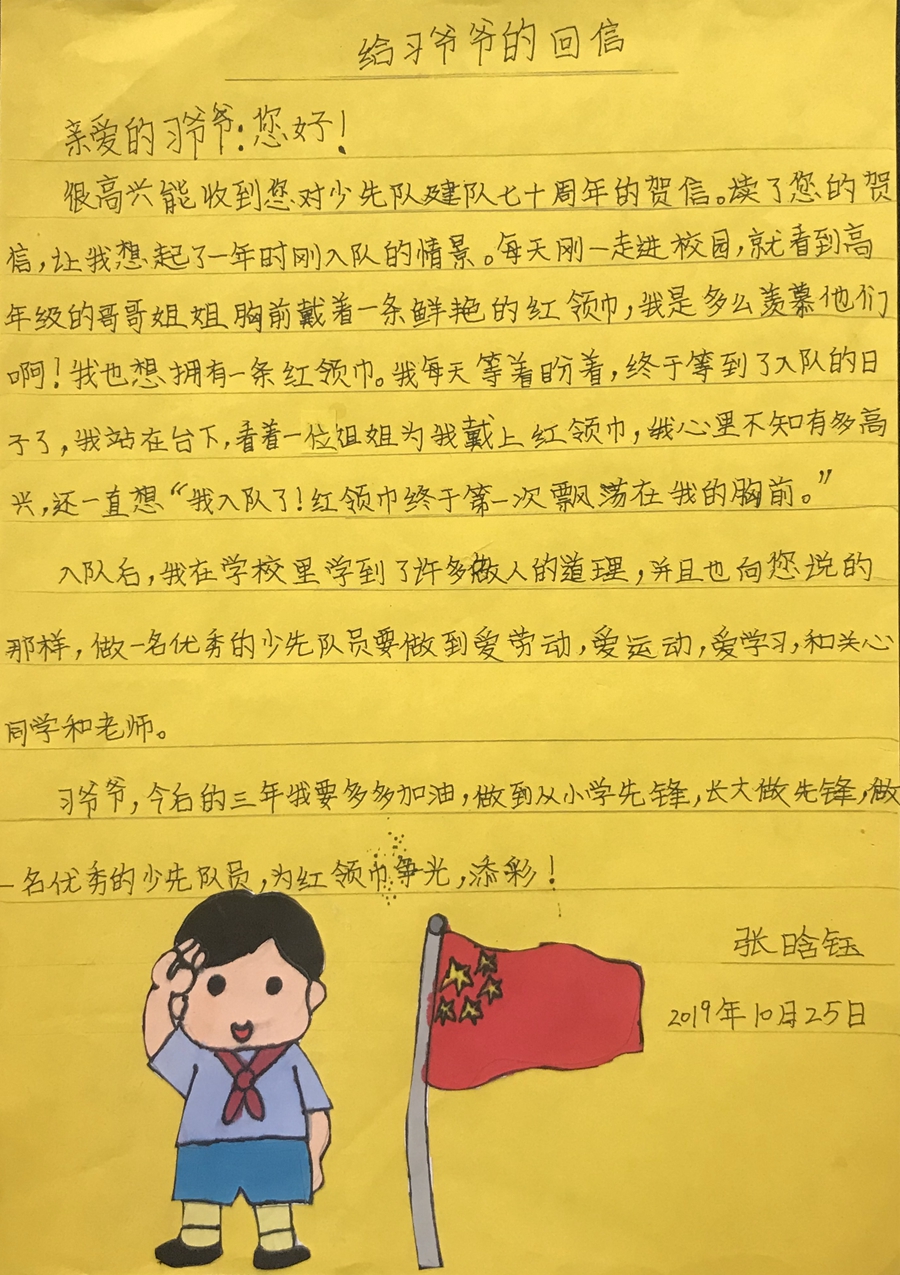 给习爷爷的回信
亲爱的习爷爷:您好!
很高兴能收到您对少先队建队七十周年的贺信。读了您的贺
信,让我想起了一年时刚入队的情景。每天刚一走进校园,就看到高
年级的哥哥姐姐胸前戴着一条鲜艳的红领巾,我是多么羡慕他们
啊!我也想拥有一条红领巾。我每天等着盼着,终于等到了入队的日
子了,我站在台下,看着一位姐姐为我戴上红领巾,我心里不知有多高
兴,还一直想“我入队了!红领巾终于第一次飘荡在我的胸前。”
入队后,我在学校里学到了许多做人的道理,并且也向您说的
那样,做一名优秀的少先队员要做到爱劳动,爱运动,爱学习,和关心
同学和老师。
习爷爷,今后的三年我要多多加油,做到从小学先锋,长大做先锋,做
一名优秀的少先队员,为红领巾争光,添彩!
张晗钰
2019年10月25日